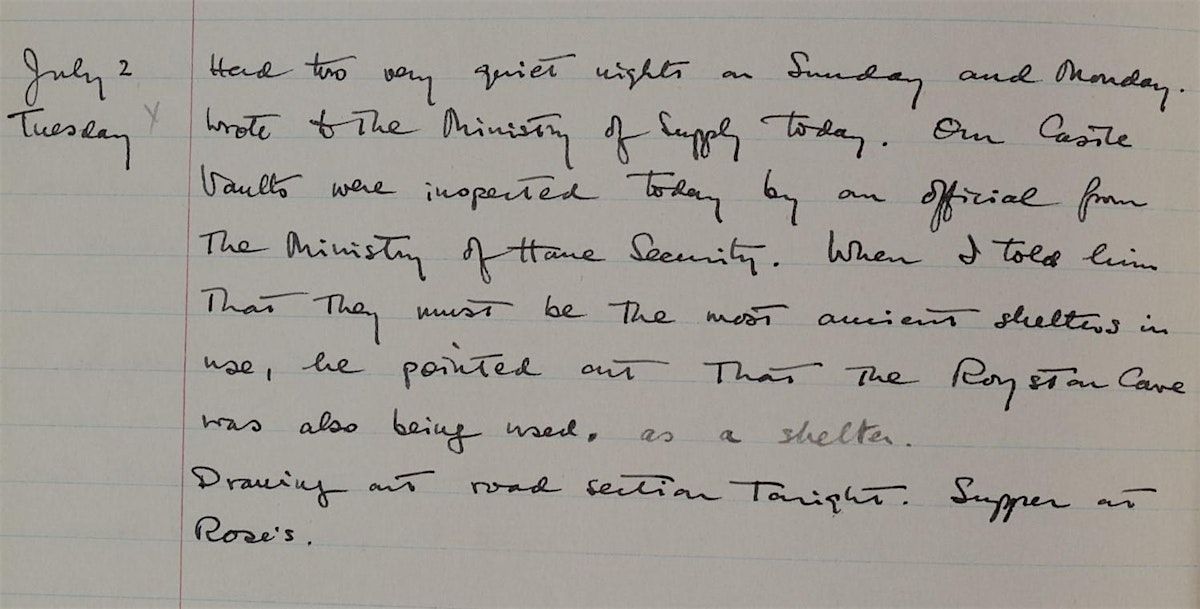 July 2
Tuesday
Had two very quiet nights on Sunday and Monday.
Wrote to the Ministry of Supply today. Our Castle
Vaults were inspected today by an official from
The Ministry of Home Security. When I told him
that they must be the most ancient shelters in
use, he pointed out that the Royston Cave
was also being used, as a shelter.
Drawing out road section tonight. Supper at
Rose's.